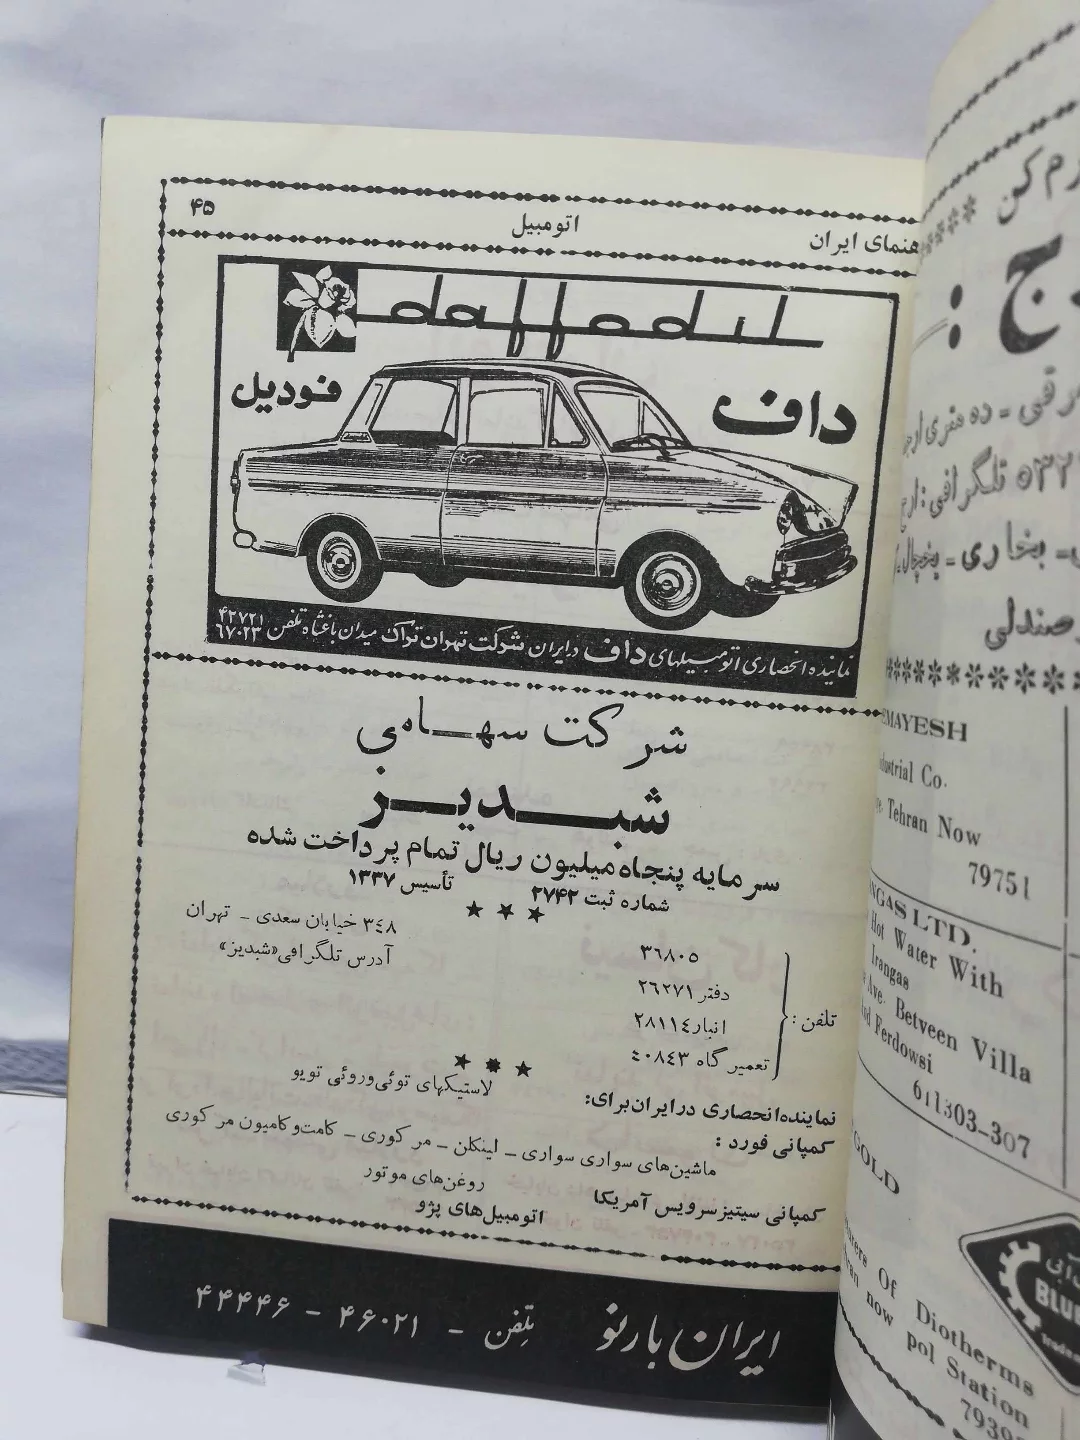 ۴۵
اتومبیل
هنمای ایران
daffodil
داف
فودیل
نماینده انحصاری اتومبیلهای داف در ایران شرکت تهران تراک میدان باغشاه تلفن ۴۲۷۲۱
۶۷۰۲۳
شرکت سهامی
شبدیز
سرمایه پنجاه میلیون ریال تمام پرداخت شده
شماره ثبت ۲۷۴۲ تأسیس ۱۳۳۷
۳۴۸ خیابان سعدی - تهران
آدرس تلگرافی «شبدیز»
تلفن :
۳۶۸۰۵
دفتر ۲۶۲۷۱
انبار ۲۸۱۱٤
تعمیر گاه ٤۰۸٤۳
نماینده انحصاری در ایران برای:
لاستیکهای توئی و روئی تویو
کمپانی فورد :
ماشین‌های سواری سواری - لینکلن - مرکوری - کامت و کامیون مرکوری
کمپانی سیتیز سرویس آمریکا
روغن‌های موتور
اتومبیل‌های پژو
ایران بارنو تلفن - ۴۶۰۲۱ - ۴۴۴۴۶
تلگرافی : ارج
بخاری - یخچال
صندلی
EMAYESH
ustrial Co.
Tehran Now
79751
NGAS LTD.
Hot Water With
Irangas
Ave. Betveen Villa
nd Ferdowsi
611303-307
GOLD
Of Diotherms
now pol Station
BLUE